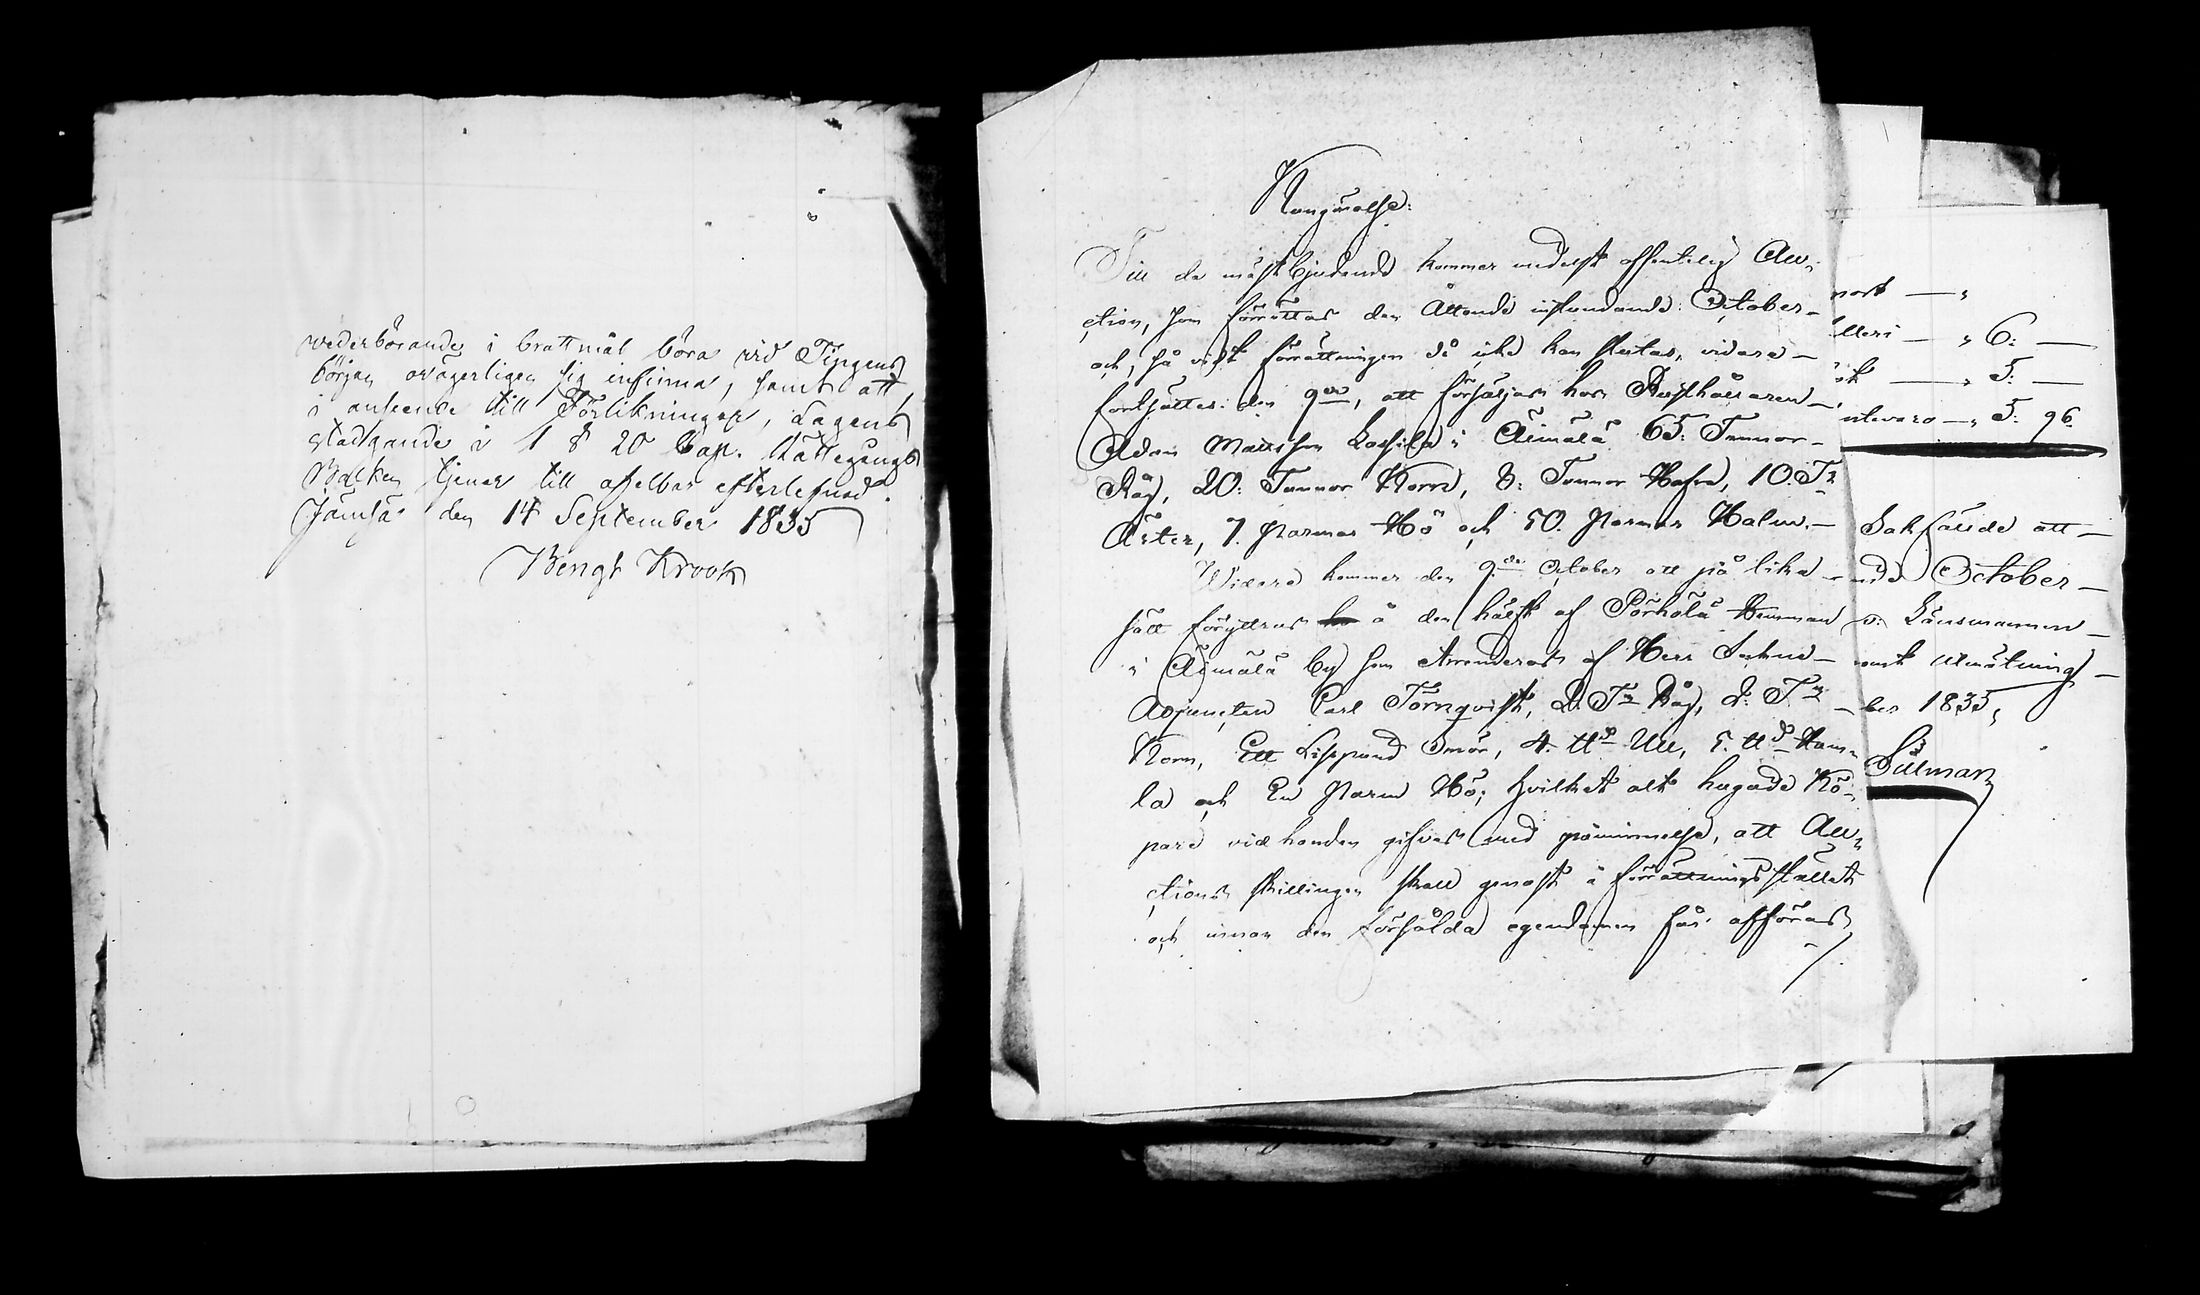 wederbörande i brottmål böra vid Tingens
början ovägerligen sig infinna, samt att,
i anseende till Förlikningar, Lagens
stadgande i 1 § 20 Cap. Rättegångs
Balken tjenar till ofelbar efterlefnad.
Jämsä den 14 September 1835
Bengt Krook
Kungörelse:
Till de mästbjudande kommer medelst offentelig Auc,
ction, som förrättas den Åttonde instundande October
och, så vidt förrättningen då icke kan slutas, vidare
fortsättes den 9de, att försäljas hos Rusthållaren
Adam Mattsson i Äimälä 65: Tunnor
Råg, 20: Tunnor Korn, 8: Tunnor Hafra, 10. Tr
Ärter, 7. Parmar Hö och 50. Parmar Halm.
Widare kommer den 9de October att på lika
sätt föryttras å den hälft af Pörhölä Hemman
i Äimälä by som Arrenderas af Herr
Adjuncten Carl Törnqvist, 2. Tr Råg, 2: Tr
Korn, Ett Lispund Smör, 4. ℔d Ull, 5. ℔d Hum-
la och En Parm Hö; hvilket allt hugade Kö-
pare vid handen gifves med påminnelse, att Auc,
ctions skillingen skall genast å förrättningsstället
och innan den försålda egendomen får afföras
6:
5:
5: 96
Sakfälde att
nde October
Länsmannen
Utmätning
ber 1835,
Silman